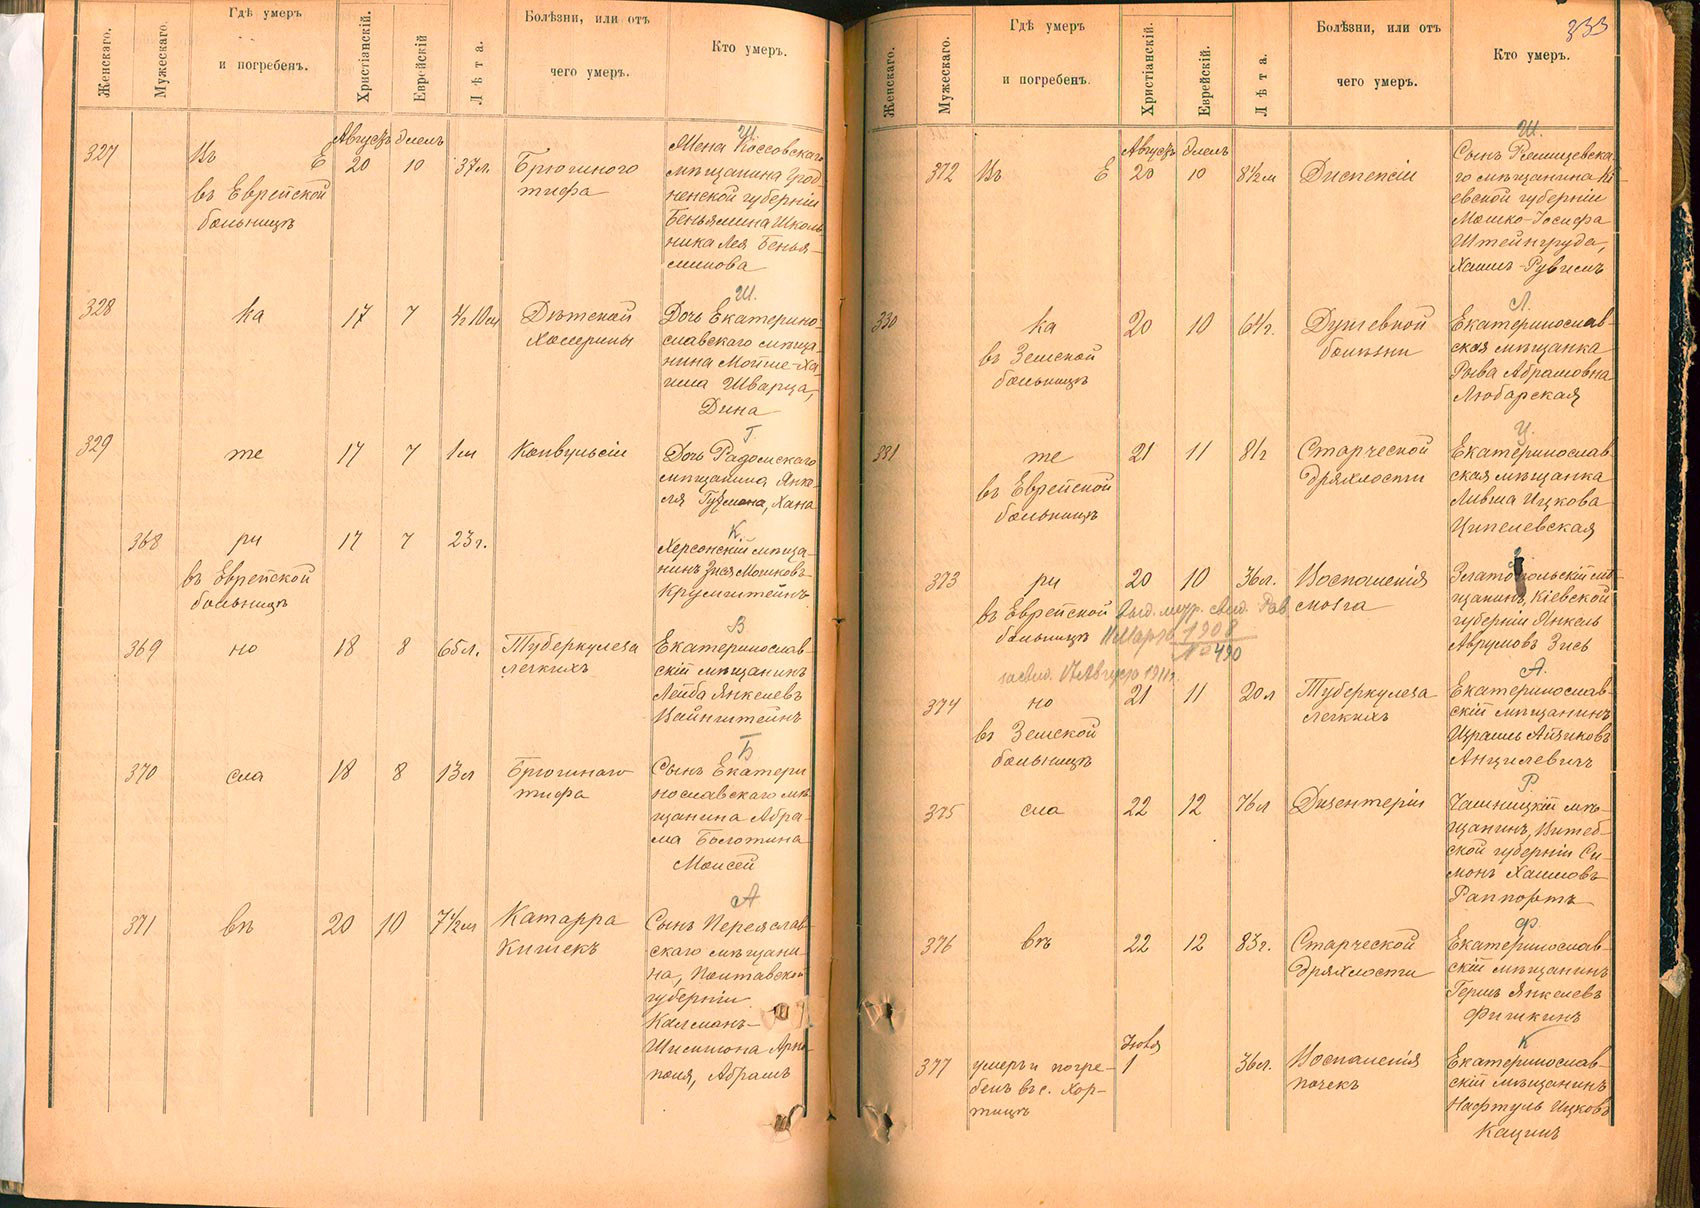 Женскаго.
Мужескаго.
Гдѣ умеръ
и погребенъ.
Христіанскій.
Еврейскій
Лѣта.
Болѣзни, или отъ
чего умеръ.
Кто умеръ.
Августъ Элелъ
327
Въ Е
въ Еврейской
больницѣ
20
10
37 л.
Брюшного
тифа
Ш.
Жена Коссовскаго
мѣщанина Грод
ненской губерніи
Беньямина Школь
ника Лея Бенья-
минова
328
ка
17
7
4 г 10 м
Дѣтской
Холерины
Ш.
Дочь Екатерино-
славскаго мѣща-
нина Мотше-Ха-
има Шварца,
Дина
329
те
17
7
1 м
Конвульсіи
Г.
Дочь Радомскаго
мѣщанина Янке-
ля Гузмана, Хана
368
ри
въ Еврейской
больницѣ
17
7
23 г.
К.
Херсонскій мѣща-
нинъ Зися Мошковъ
Крумштейнъ
369
но
18
8
65 л.
Туберкулеза
легкихъ
В
Екатеринослав-
скій мѣщанинъ
Лейба Янкелевъ
Вайнштейнъ
370
сла
18
8
13 л
Брюшнаго
тифа
Б
Сынъ Екатери
нославскаго мѣ-
щанина Абра-
ма Болотина
Моисей
371
вѣ
20
10
7 1/2 м
Катарра
Кишекъ
А
Сынъ Переяслав-
скаго мѣщани-
на, Полтавской
губерніи
Калманъ-
Шимона Арно-
поля, Абрамъ
333
Женскаго.
Мужескаго.
Гдѣ умеръ
и погребенъ.
Христіанскій.
Еврейскій.
Лѣта.
Болѣзни, или отъ
чего умеръ.
Кто умеръ.
Августъ Элелъ
372
Въ Е
20
10
8 1/2 м
Диспепсіи
Ш.
Сынъ Ржищевска-
го мѣщанина Кі
евской губерніи
Мошко-Іосифа
Штейнгруда,
Хаимъ-Рувимъ
330
ка
въ Земской
больницѣ
20
10
64 г.
Душевной
болѣзни
Л.
Екатеринослав-
ская мѣщанка
Рыва Абрамовна
Любарская
331
те
въ Еврейской
больницѣ
21
11
81 г
Старческой
дряхлости
Ц.
Екатеринослав-
ская мѣщанка
Ливша Ицкова
Ципелевская
373
ри
въ Еврейской
больницѣ
20
10
36 л.
Воспаленія
мозга
З
Златопольскій мѣ
щанинъ, Кіевской
губерніи Янкель
Аврумовъ Зись
Выд. мур. свид. Рав
11 Марта 1908
№ 490
засвид. 17 Августа 1911 г.
374
но
въ Земской
больницѣ
21
11
20 л
Туберкулеза
легкихъ
А.
Екатеринослав-
скій мѣщанинъ
Израиль Айзиковъ
Анцилевичъ
375
сла
22
12
76 л
Дизентеріи
Р
Чашницкій мѣ-
щанинъ, Витеб-
ской губерніи Си-
монъ Хаимовъ
Раппортъ
376
вѣ
22
12
83 г.
Старческой
дряхлости
Ф.
Екатеринослав-
скій мѣщанинъ
Гершъ Янкелевъ
Фишкинъ
377
умеръ и погре-
бенъ въ с. Хор-
тицѣ
Іюля
1
36 л.
Воспаленія
почекъ
К
Екатеринослав-
скій мѣщанинъ
Нафтуль Ицковъ
Кацинъ